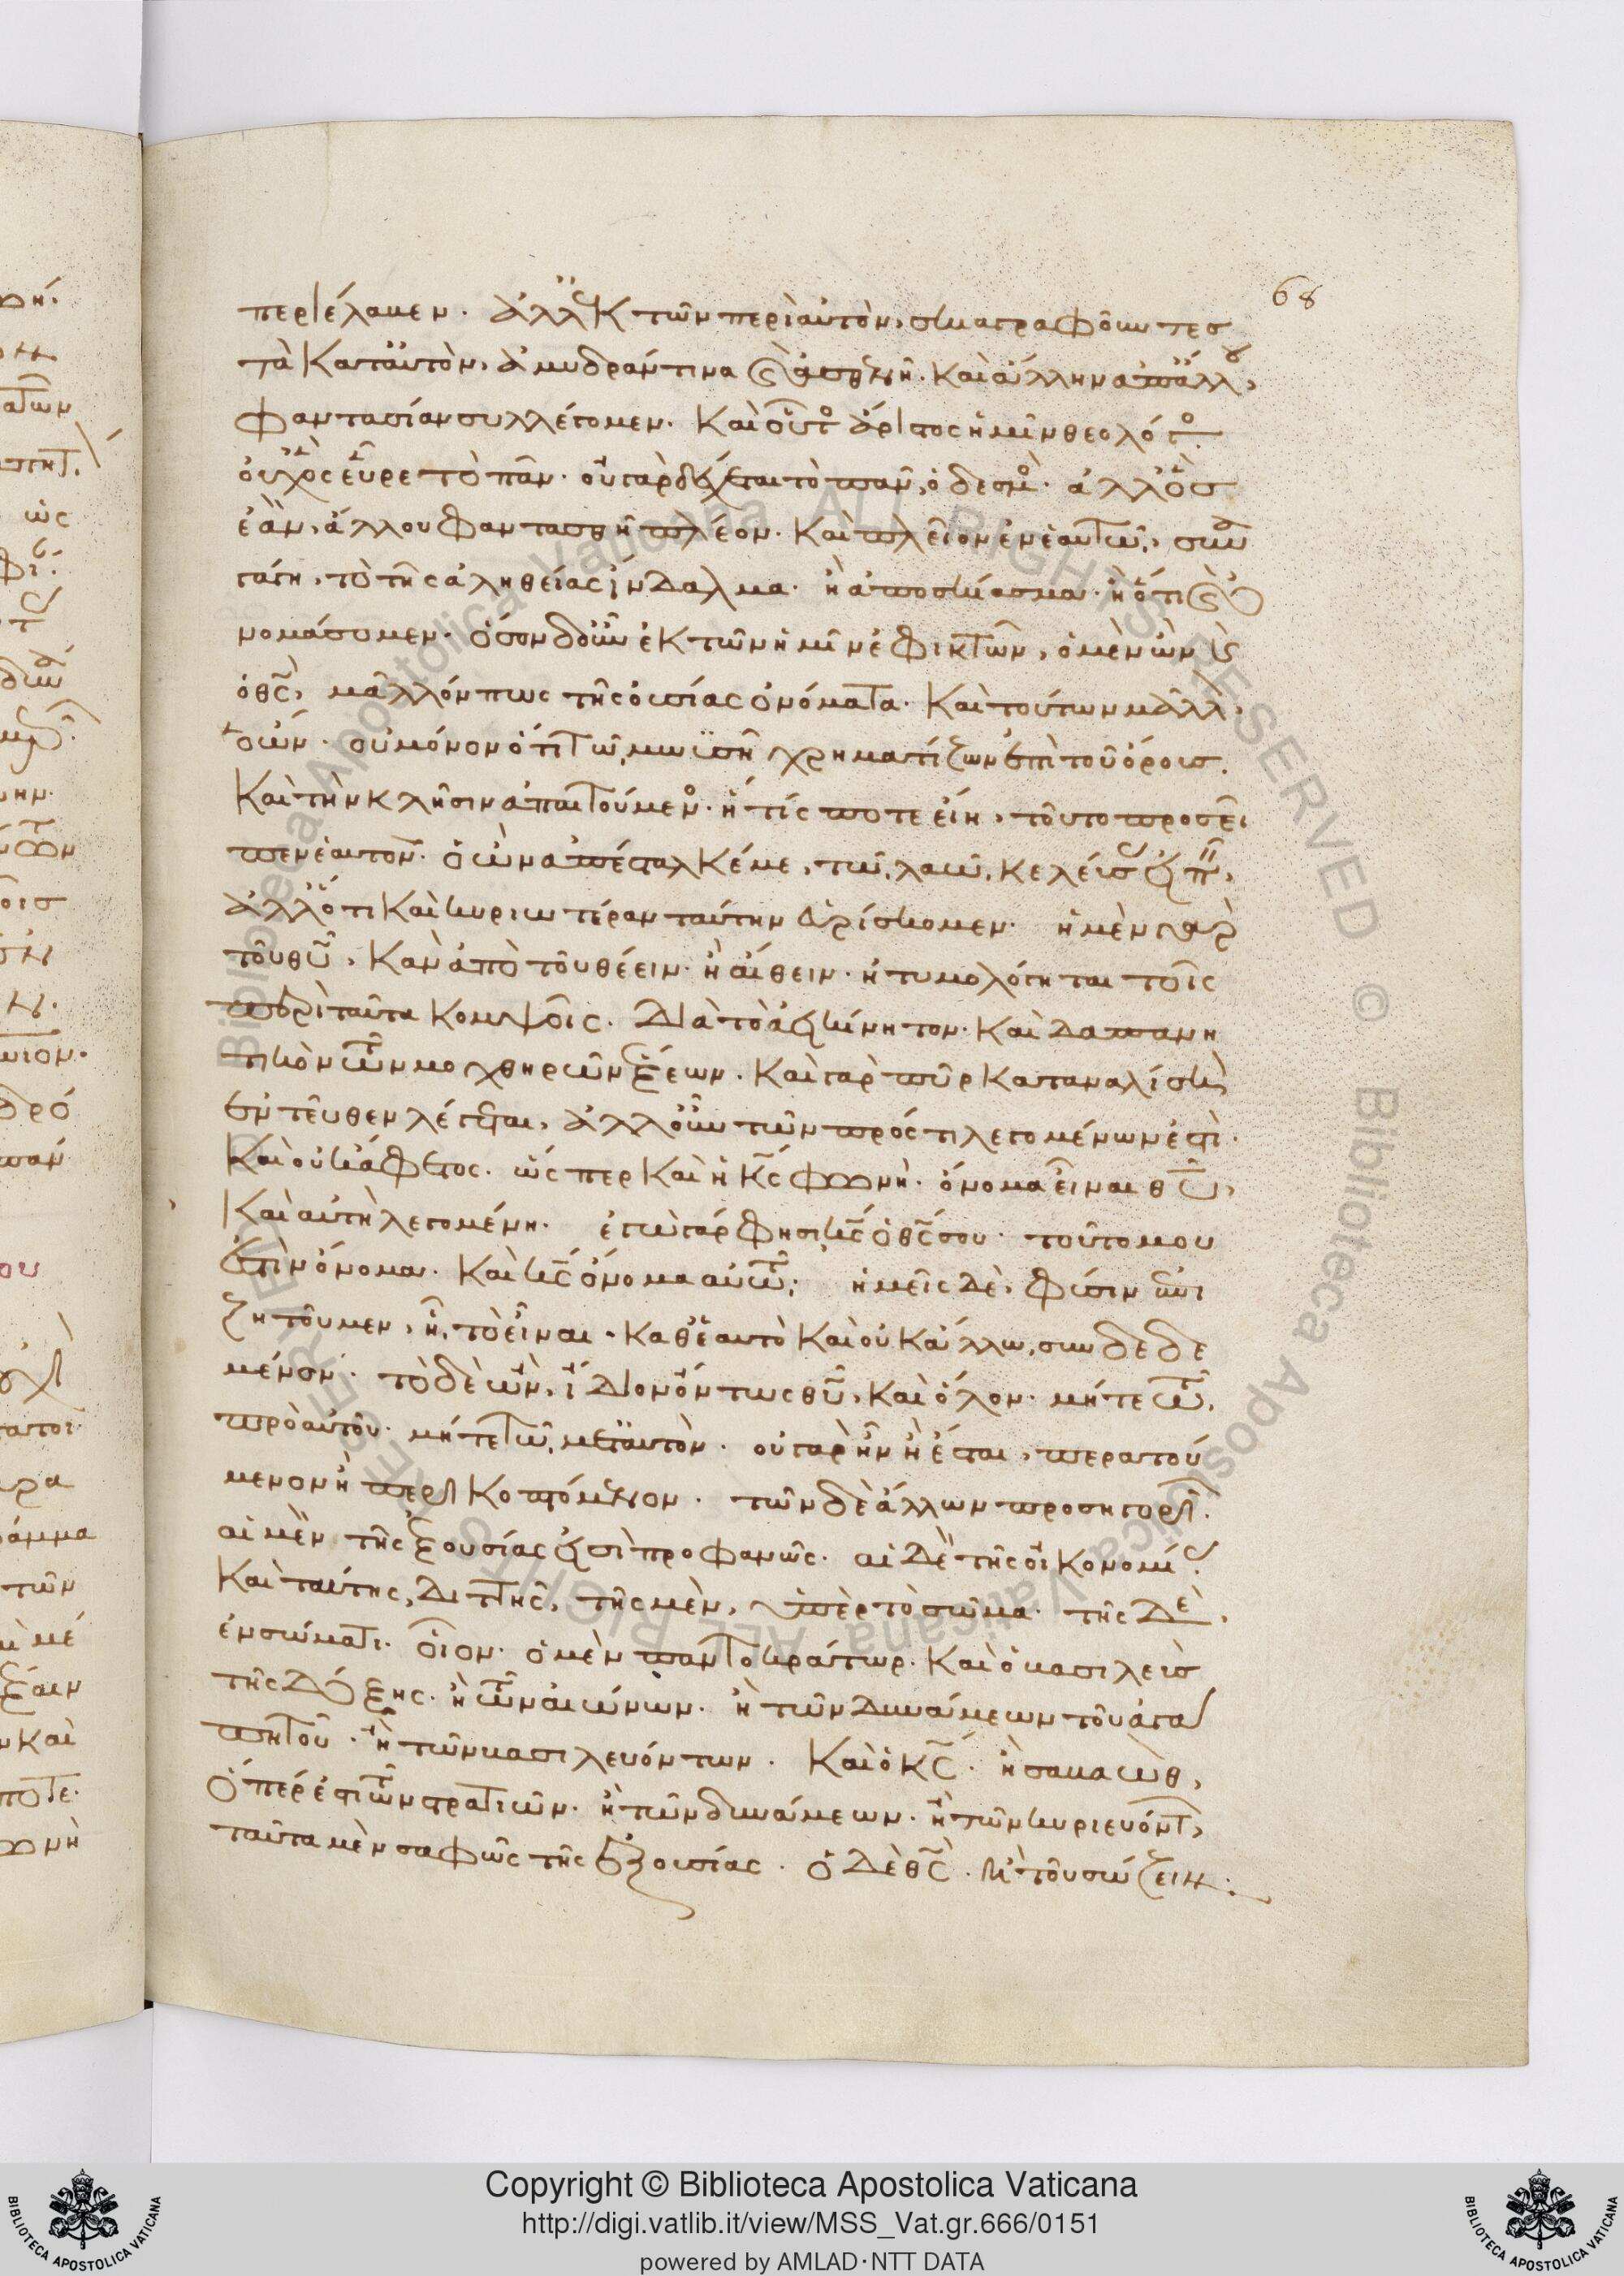 68
περιέλαβεν. ἀλλ' ἐκ τῶν περὶ αὐτὸν, σκιαγραφοῦντες
τὰ κατ' αὐτὸν, ἀμυδράν τινα καὶ ἀσθενῆ. καὶ ἄλλην ἀπ' ἄλλου,
φαντασίαν συλλέγομεν. καὶ οὗτος ἄριστος ἡμῖν θεολόγος.
οὐχ ὃς εὗρε τὸ πᾶν. οὐ γὰρ δέχεται τὸ πᾶν, ὁ δεσμός. ἀλλ' ὃς
ἐὰν, ἄλλου φαντασθῇ πλέον. καὶ πλεῖον ἐν ἑαυτῷ, συνα
γάγῃ, τὸ τῆς ἀληθείας ἴνδαλμα. ἢ ἀποσκίασμα. ἢ ὅ τι καὶ ὀ
νομάσομεν. ὅσον δ' οὖν ἐκ τῶν ἡμῖν ἐφικτῶν, ὁ μὲν ὢν καὶ
ὁ θ̅ς̅, μᾶλλόν πως τῆς οὐσίας ὀνόματα. καὶ τούτων μᾶλλον
ὁ ὤν. οὐ μόνον ὅτι τῷ μωϋσῇ χρηματίζων ἐπὶ τοῦ ὄρους.
καὶ τὴν κλῆσιν ἀπαιτούμενος. ἥ τίς ποτε εἴη, τοῦτο προσεῖ
πεν ἑαυτόν. ὁ ὢν ἀπέσταλκέ με, τῷ λαῷ κελεύσας εἰπεῖν,
ἀλλ' ὅτι καὶ κυριωτέραν ταύτην εὑρίσκομεν. ἡ μὲν γὰρ
τοῦ θ̅υ̅, κἂν ἀπὸ τοῦ θέειν. ἢ αἴθειν. ἠτυμολόγηται τοῖς
περὶ ταῦτα κομψοῖς. διὰ τὸ ἀεικίνητον. καὶ δαπανη
τικὸν τῶν μοχθηρῶν ἕξεων. καὶ γὰρ πῦρ καταναλίσκον
ἐντεῦθεν λέγεται, ἀλλ' οὖν τῶν πρός τι λεγομένων ἐστὶ.
καὶ οὐκ ἄφετος. ὥσπερ καὶ ἡ κ̅ς̅ φωνὴ. ὄνομα εἶναι θ̅υ̅,
καὶ αὐτὴ λεγομένη. ἐγὼ γάρ φησι κ̅ς̅ ὁ θ̅ς̅ σου. τοῦτο μου
ἐστὶν ὄνομα. καὶ κ̅ς̅ ὄνομα αὐτῷ; ἡμεῖς δὲ, φύσιν ἐπι
ζητοῦμεν, ᾗ, τὸ εἶναι. καθ' ἑαυτὸ καὶ οὐκ ἄλλῳ, συνδεδε
μένον. τὸ δὲ ὢν, ἴδιον ὄντως θ̅υ̅, καὶ ὅλον. μήτε τῷ
πρὸ αὐτοῦ. μήτε τῷ μετ' αὐτὸν. οὐ γὰρ ἦν ἢ ἔσται, περατού
μενον ἢ περικοπτόμενον. τῶν δὲ ἄλλων προσηγοριῶν.
αἱ μὲν τῆς ἐξουσίας εἰσὶ προφανῶς. αἱ δὲ τῆς οἰκονομίας.
καὶ ταύτης, διττῆς, τῆς μὲν, ὑπὲρ τὸ σῶμα. τῆς δὲ,
ἐν σώματι. οἷον. ὁ μὲν παντοκράτωρ. καὶ ὁ βασιλεὺς
τῆς δόξης. ἢ τῶν αἰώνων. ἢ τῶν δυνάμεων τοῦ ἀγα
πητοῦ. ἢ τῶν βασιλευόντων. καὶ ὁ κ̅ς̅. ἢ σαβαώθ,
ὅπέρ ἐστι τῶν στρατιῶν. ἢ τῶν δυνάμεων. ἢ τῶν κυριευόντων,
ταῦτα μὲν σαφῶς τῆς ἐξουσίας. ὁ δὲ θ̅ς̅. ἢ τοῦ σώζειν.
Copyright © Biblioteca Apostolica Vaticana
http://digi.vatlib.it/view/MSS_Vat.gr.666/0151
powered by AMLAD·NTT DATA